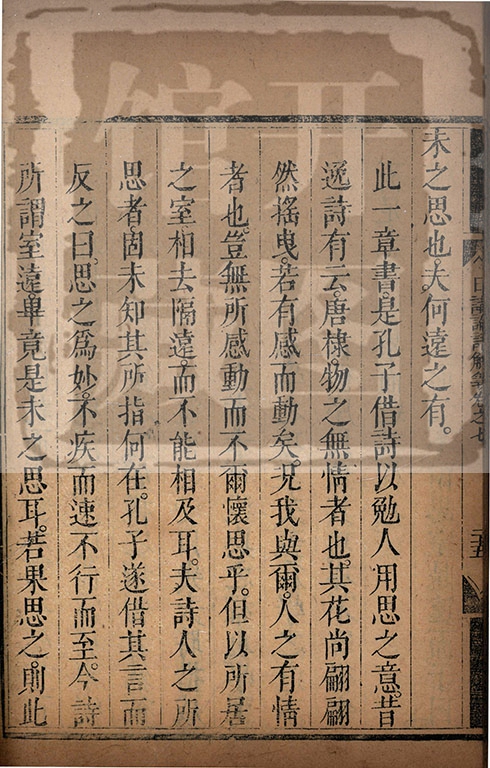 未之思也。夫何遠之有。
此一章書。是孔子借詩以勉人用思之意。昔
逸詩有云。唐棣。物之無情者也。其花尚翩翩
然搖曳。若有感而動矣。況我與爾。人之有情
者也。豈無所感動而不爾懷思乎。但以所居
之室相去隔遠。而不能相及耳。夫詩人之所
思者。固未知其所指何在。孔子遂借其言而
反之曰。思之爲妙。不疾而速。不行而至。今詩
所謂室遠。畢竟是未之思耳。若果思之。則此